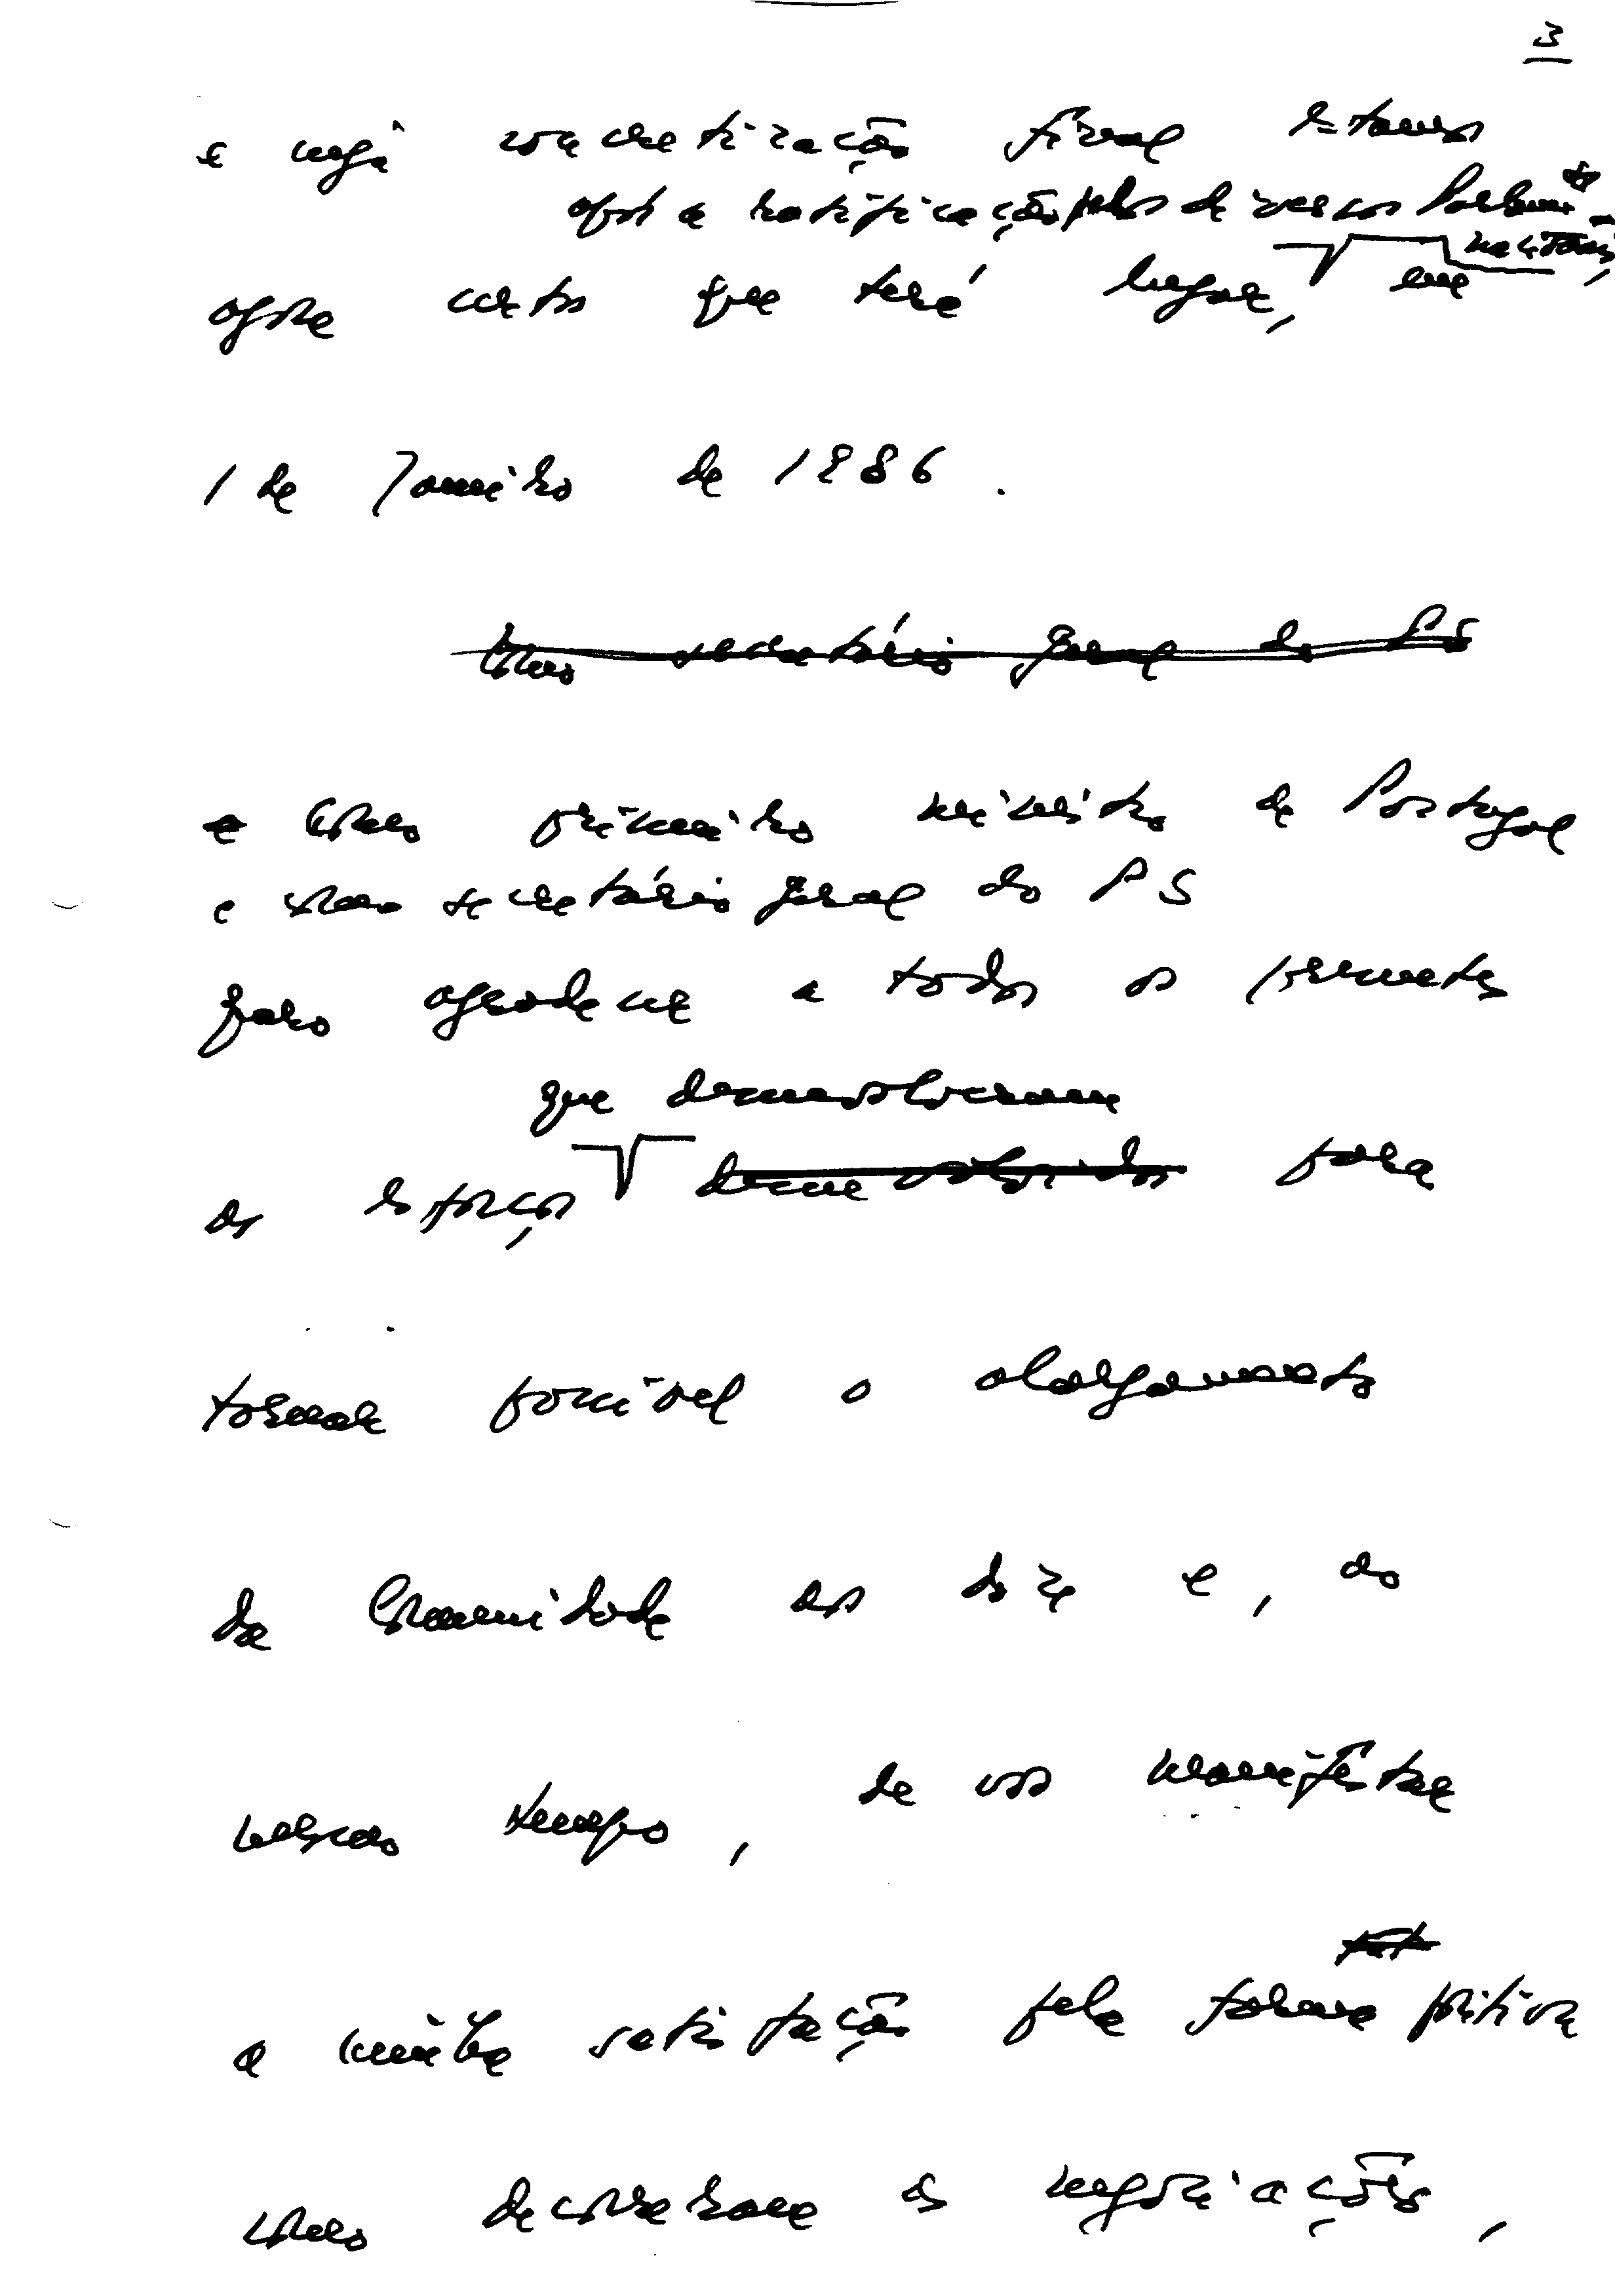 3
e cuja concretização final estamos
após a ratificação pelos diversos Parlamentos
nacionais,
agora certos que terá lugar, em
1 de Janeiro de 1986.
Como secretário geral do PS
e Como primeiro ministro de Portugal
e como secretário geral do PS
quero agradecer a todos os presentes
que desenvolveram
os esforços desenvolvidos para
tornar possível o alargamento
da Comunidade aos doze e, ao
mesmo tempo, de vos manifestar
a minha satisfação pela forma positiva
como decorreram as negociações,